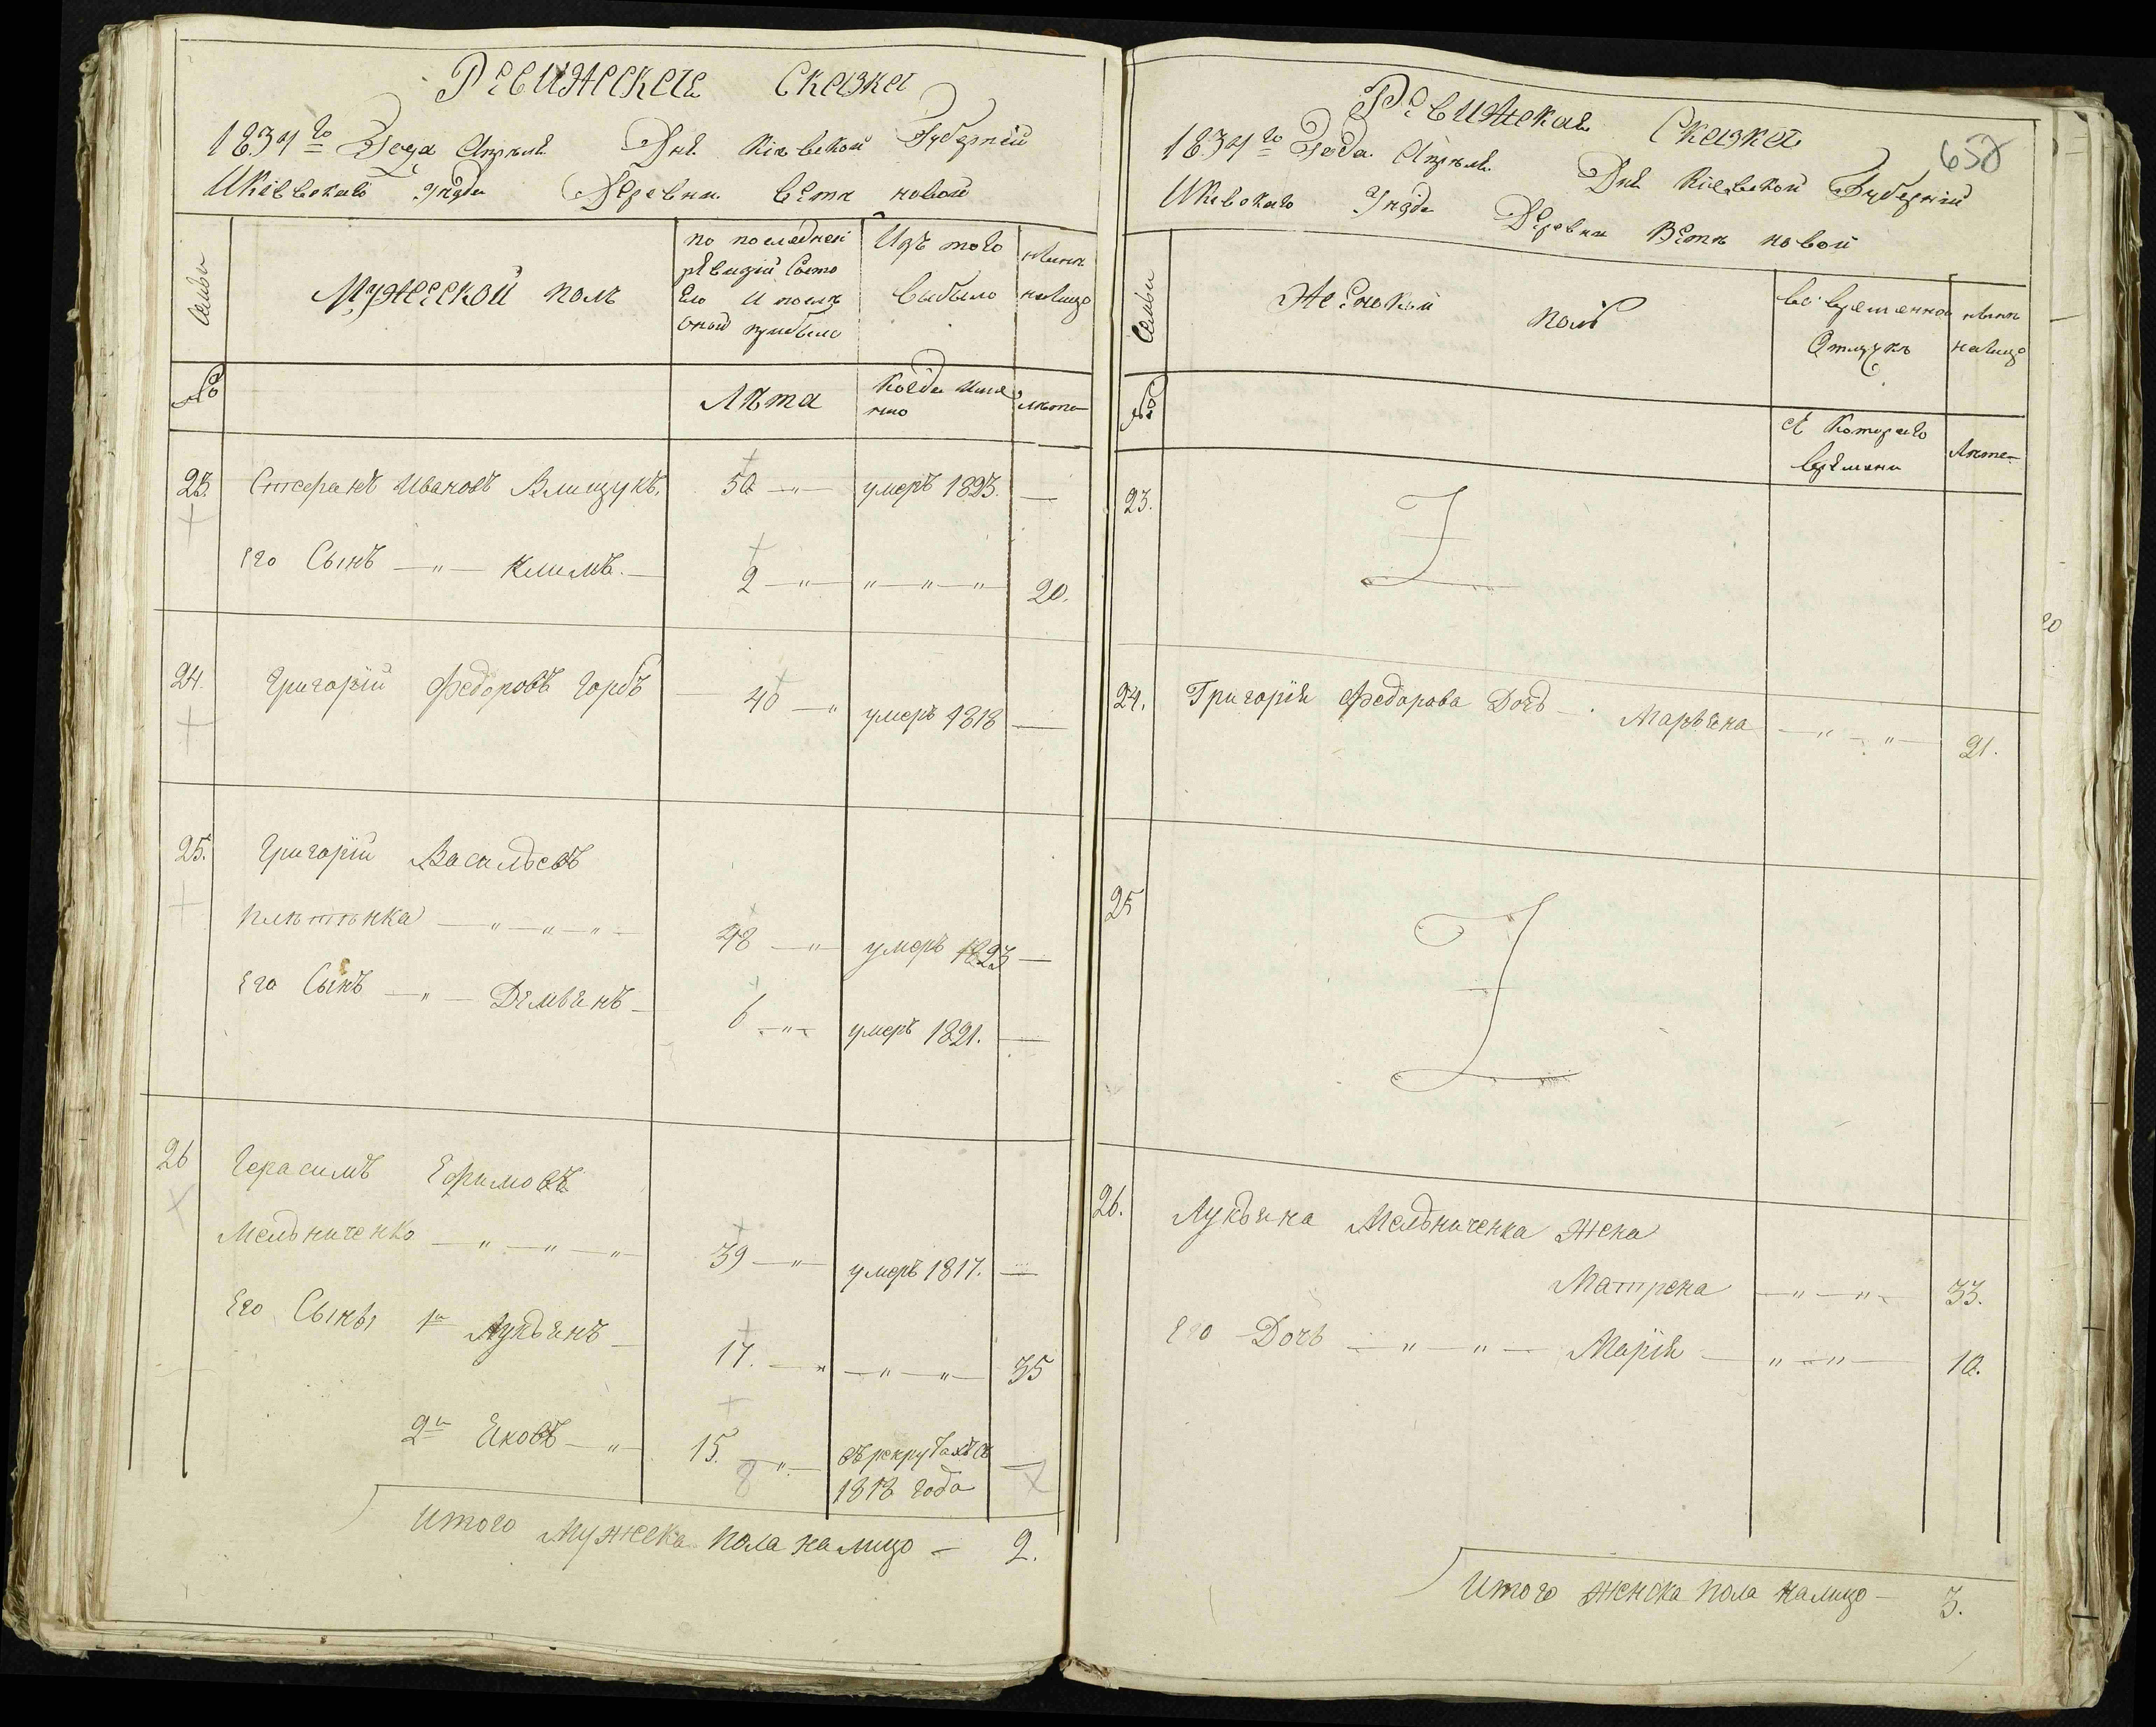 Ревижская Сказка
1834го Года Апреля Дня Кіевской Губерніи
Икіевскаго Уезда Деревни Вѣтк новой
Семьи
Мужеской полъ
по последней
ревизіи Состо
Ело И после
оной прибыло
Изъ того
выбыло
ныне
налицо
№
Лѣта
Когда Имя
нно
лета
23. Стефанъ Ивановъ Влищукъ. 50 —"— умеръ 1823. —
Его Сынъ —"— Климъ. — 2 —"— "—"—" 20.
24. Григорій Федоровъ Горбъ 40 —" умеръ 1818 —
25. Григорій Васильевъ
—"—"—"— 48 —"— умеръ 1823 —
Его Сынъ —"— Демьянъ — 6 —"— умеръ 1821. —
26 Герасимъ Ефимовъ
Мельниченко —"—"—"— 39 —"— умеръ 1817. —
Его Сыны 1й Лукьянъ — 17. —"— "—"— 35
2й Яковъ —"— 15. —"— въ рекрутахъ съ —
8
1818 года
Итого Мужска пола налицо — 2.
Ревижская Сказка
652
1834го Года Апреля Дня Кіевской Губерніи
Икевскаго Уезда Деревни Ветк новой
Семьи
Женской полъ
во временной
Отлучкѣ
ныне
налицо
№
съ Котораго
времени
Лета
23.
24. Григорія Федорова Дочь — Марьяна —"—"— 21.
25
26. Лукьяна Мельниченка Жена
Матрена —"—"— 33.
Его Дочь —"—"— Марія —"—"— 10.
Итого женска пола налицо — 3.